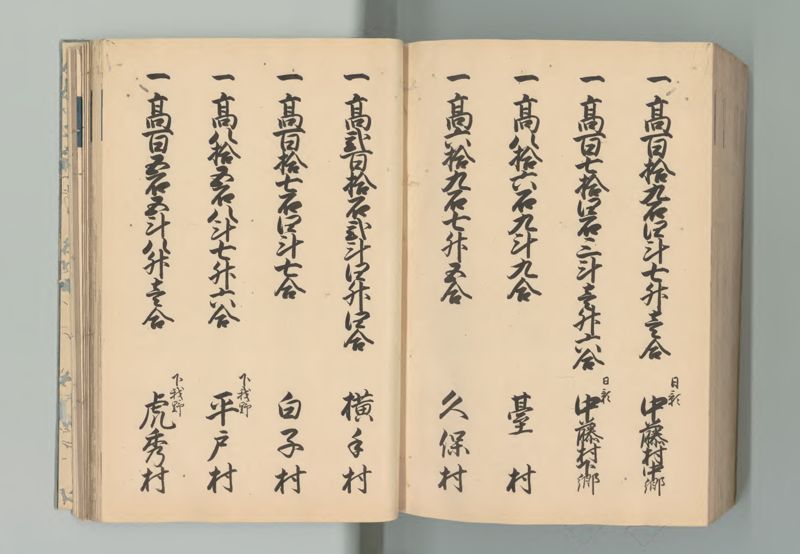 一 高百拾九石四斗七升壱合 日影 中藤村中郷
一 高百七拾四石三斗壱升六合 日影 中藤村下郷
一 高八拾六石九斗九合 䑓村
一 高六拾九石七升五合 久保村
一 高弐百拾石弐斗四升四合 横手村
一 高百拾七石四斗七合 白子村
一 高八拾五石八斗七升六合 下我野 平戸村
一 高百五石五斗八升壱合 下我野 虎秀村